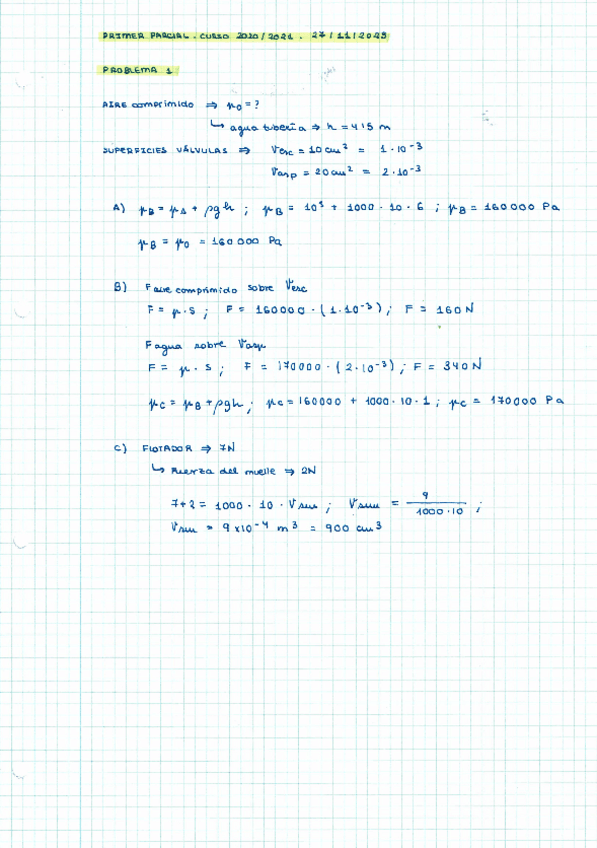 PRIMER PARCIAL. CURSO 2020/2021. 27/11/2023
PROBLEMA 1
AIRE comprimido ⇒ p₀ = ?
↳ agua tubería ⇒ h = 4'5 m
SUPERFICIES VÁLVULAS ⇒ Vesc = 10 cm² = 1·10⁻³
Vasp = 20 cm² = 2·10⁻³
A) pB = pA + ρgh ; pB = 10⁵ + 1000 · 10 · 6 ; pB = 160000 Pa
pB = p₀ = 160000 Pa
B) F aire comprimido sobre Vesc
F = p·s ; F = 160000 · (1·10⁻³) ; F = 160 N
F agua sobre Vasp
F = p · s ; F = 170000 · (2·10⁻³) ; F = 340 N
pC = pB + ρgh ; pC = 160000 + 1000 · 10 · 1 ; pC = 170000 Pa
C) FLOTADOR ⇒ 7N
↳ Fuerza del muelle ⇒ 2N
7+2 = 1000 · 10 · Vsum ; Vsum = 9 / 1000·10 ;
Vsum = 9 x10⁻⁴ m³ = 900 cm³